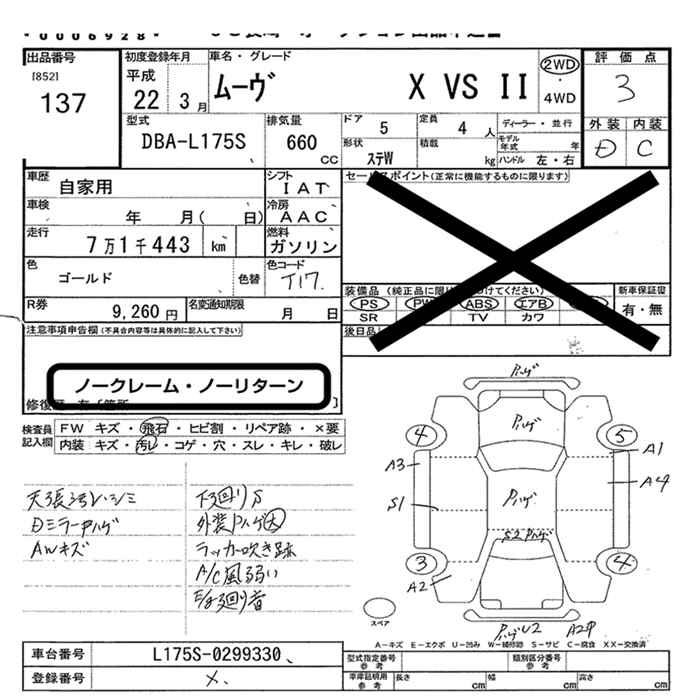 * 0 0 0 6 9 2 8 *
出品番号 初度登録年月 車名・グレード 評価点
[852] 平成 ムーヴ X VS II 2WD 3
137 22年 3月 4WD
外装 内装
型式 排気量 ドア 5 定員 4人 ディーラー・並行 D C
DBA-L175S 660cc 形状 ステW 積載 kg モデル年式 年
ハンドル 左・右
車歴 自家用 シフト IAT セールスポイント(正常に機能するものに限ります)
車検 年 月( 日) 冷房 AAC
走行 7万1千443 km 燃料 ガソリン
色 ゴールド 色替 色コード T17
装備品 PS PW ABS エアB 新車保証書
SR TV カワ 有・無
R券 9,260円 名変通知期限 月 日
後日品
注意事項申告欄(不具合内容等は具体的に記入して下さい)
ノークレーム・ノーリターン
検査員記入欄 FW キズ・飛石・ヒビ割・リペア跡・×要
内装 キズ・汚レ・コゲ・穴・スレ・キレ・破レ
天張汚レ・シミ 下廻りS
Dミラーハゲ 外装ハゲ大
AWキズ ラッカ吹き跡
A/C風弱い
E/g廻り音
ハゲ
ハゲ
4 5
A3 A1
ハゲ A4
S1
S2 ハゲ
3 4
A2
スペア
ハゲU2 A2中
A-キズ E-エクボ U-凹み W-補修跡 S-サビ C-腐食 XX-交換済
車台番号 L175S-0299330 型式指定番号 参考 類別区分番号 参考
登録番号 × 車庫証明用 参考 長さ cm 幅 cm 高さ cm